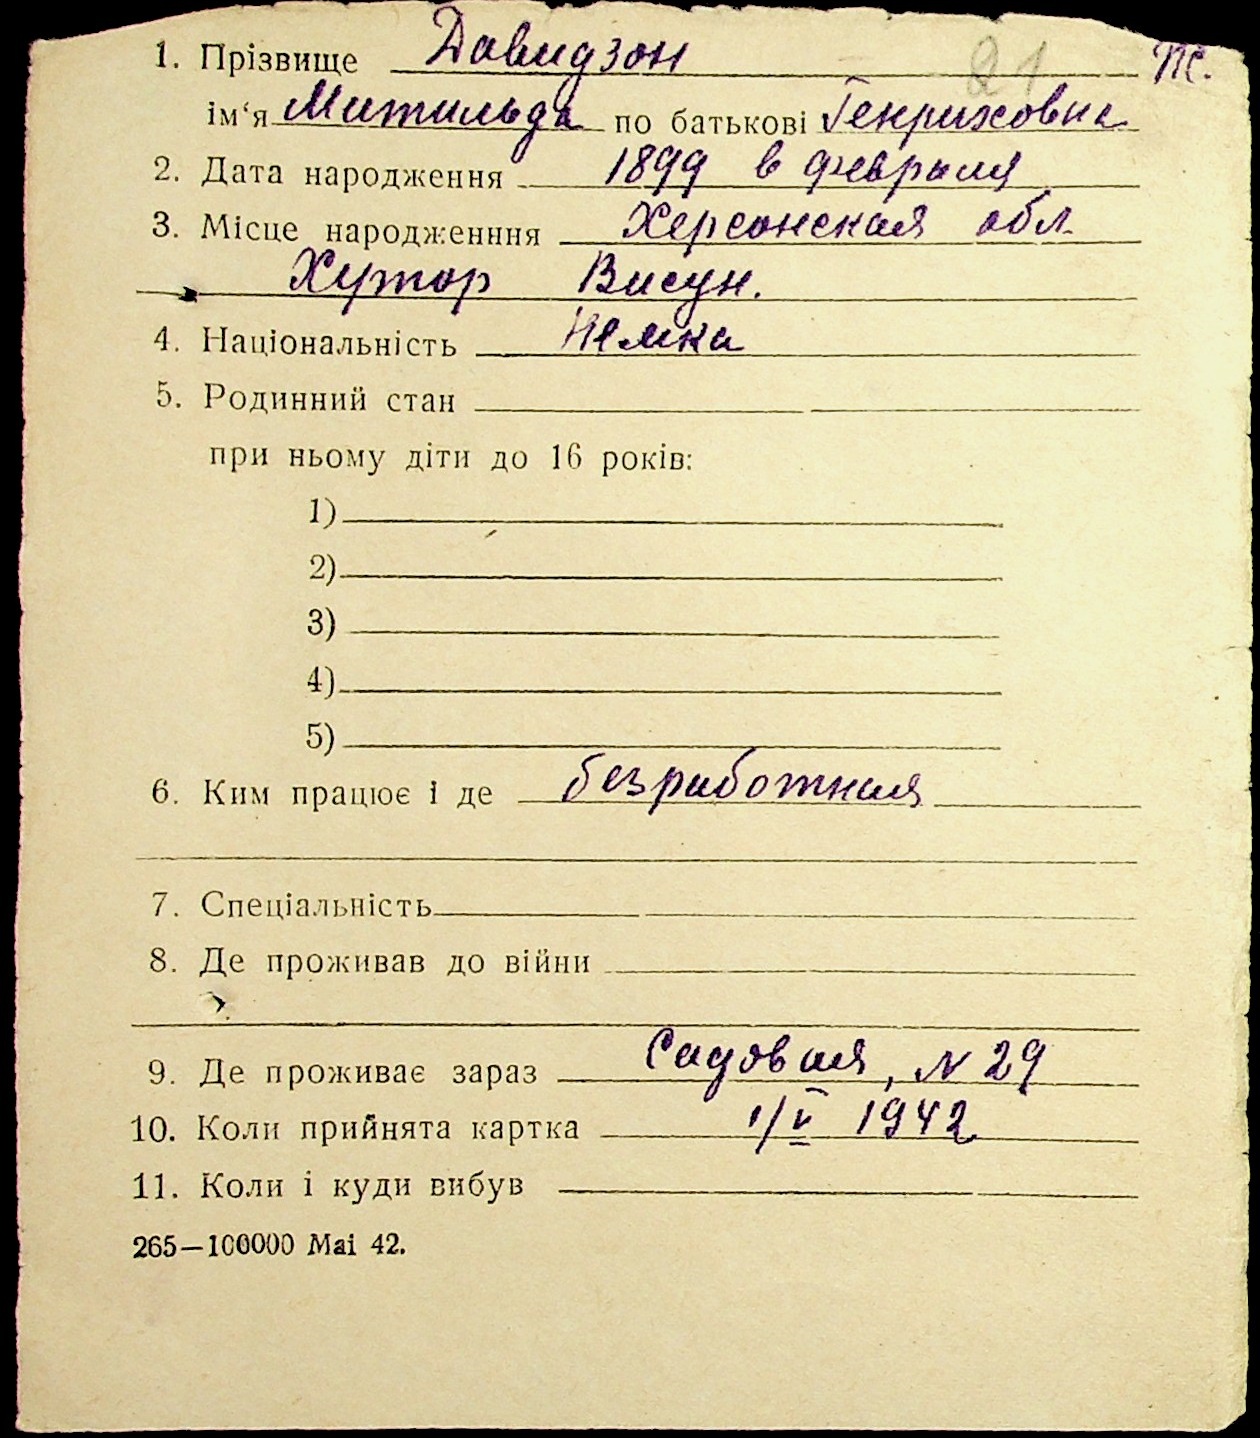 1. Прізвище Давидзон 21 Ж.
ім‘я Митильда по батькові Генриховна
2. Дата народження 1899 в феврыля
3. Місце народженння Херсонская обл.
Хутор Висун.
4. Національність Немка
5. Родинний стан
при ньому діти до 16 років:
1)
2)
3)
4)
5)
6. Ким працює і де безработная
7. Спеціальність
8. Де проживав до війни
9. Де проживає зараз Садовая, N 29
10. Коли прийнята картка 1/V 1942
11. Коли і куди вибув
265—100000 Mai 42.